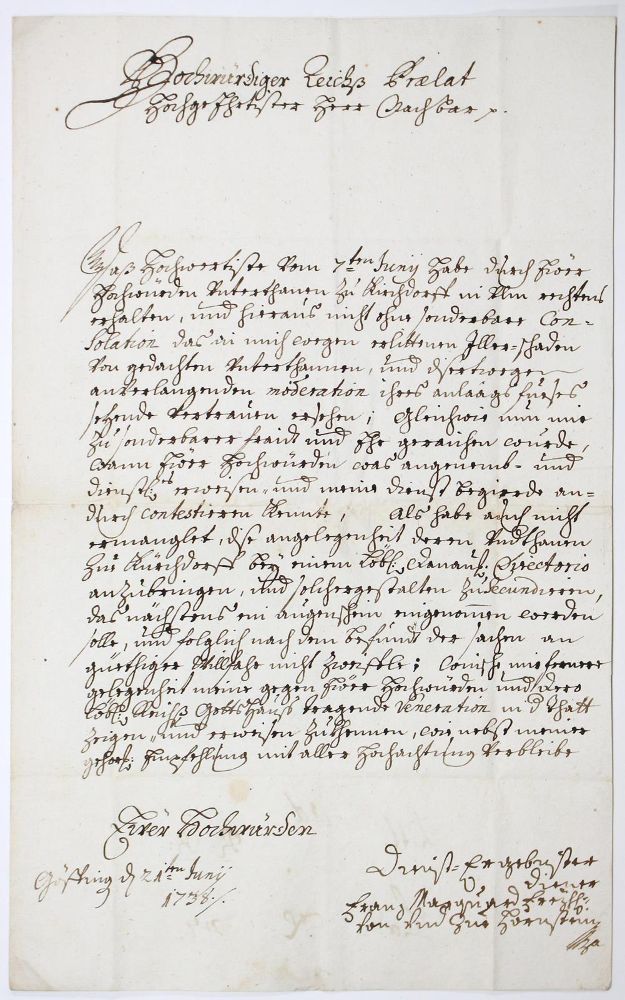 Hochwürdiger Reichß Prælat
Hochgeehrtister Herr Nachbar p.
Daß Hochwertiste vom 7ten Junij habe durch Eüer
Hochwürden Unterthanen zu Kirchdorff in Ulm rechtens
erhalten, und hieraus nicht ohne sonderbare Con-
solation das an mich wegen erlittenen Iller-schaden
von gedachten Unterthannen, und dısertwegen
anverlangenden moderation ihres anlaags fueses
sezende Vertrauen ersehen; Gleichwie nun mir
zu sonderbarer fraidt und Ehr geraichen wurde,
wann Eüer Hochwürden was angenemb- und
dienstl: erweisen, und meine dienst begierde an-
durch contestieren kennte, Als habe auch nicht
ermanglet, dise angelegenheit deren Undthanen
zu Kürchdorff bey einem Lobl: Directorio
anzubringen, und solchergestalten zu secundieren,
das nächstens ein augenschein eingenommen werden
solle, und folglich nach dem befundt der sachen an
güethiger Willfahr nicht zweiffle; Wünsche mir fernere
gelegenheit meine gegen Eüer Hochwürden und Dero
Lobl: Reichß Gottshauß tragende Veneration in d' Thatt
zeigen, und erweisen zu khennen, wie nebst meiner
gehors: Empfehlung mit aller Hochachtung verbleibe
Eüer Hochwürden
Göffing d 21ten Junij
1738./.
Dienst-Ergebnister
Diener
Franz Marquard Freyh:
von und zue Hornstein